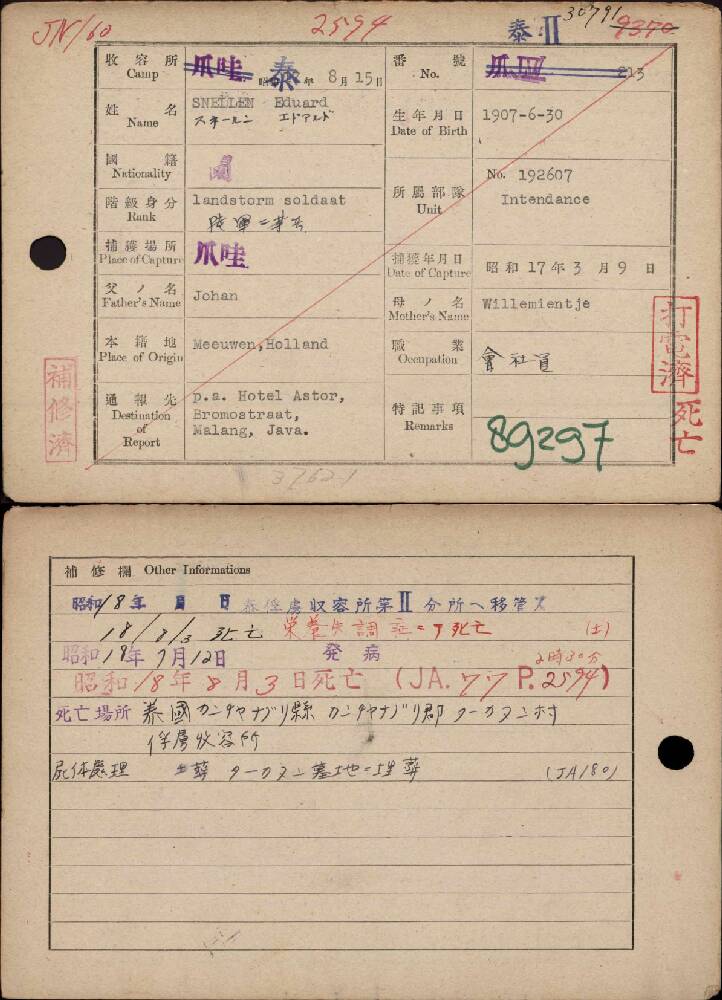 JN/60
2594
泰 II
30791
9370
收容所
Camp
爪哇 泰 昭和 年 8月15日
番號
No.
爪哇 IV 213
姓名
Name
SNELLEN Eduard
スネールン エドアルド
生年月日
Date of Birth
1907-6-30
國籍
Nationality
蘭
階級身分
Rank
landstorm soldaat
陸軍二等兵
所屬部隊
Unit
No. 192607
Intendance
捕獲場所
Place of Capture
爪哇
捕獲年月日
Date of Capture
昭和 17年 3月 9日
父ノ名
Father's Name
Johan
母ノ名
Mother's Name
Willemientje
本籍地
Place of Origin
Meeuwen,Holland
職業
Occupation
會社員
通報先
Destination
of
Report
p.a. Hotel Astor,
Bromostraat,
Malang, Java.
特記事項
Remarks
89297
補修濟
打電濟
死亡
3762-1
補修欄 Other Informations
昭和18年 月 日 泰俘虜収容所第II分所ヘ移管ス
18/8/3 死亡 栄養失調症ニテ死亡 (土)
昭和18年7月12日 発病 2時30分
昭和18年8月3日死亡 (JA.77 P.2594)
死亡場所 泰國カンチャナブリ縣カンチャナブリ郡ターカヌン村
俘虜收容所
屍体處理 土葬 ターカヌン墓地ニ埋葬 (JA180)